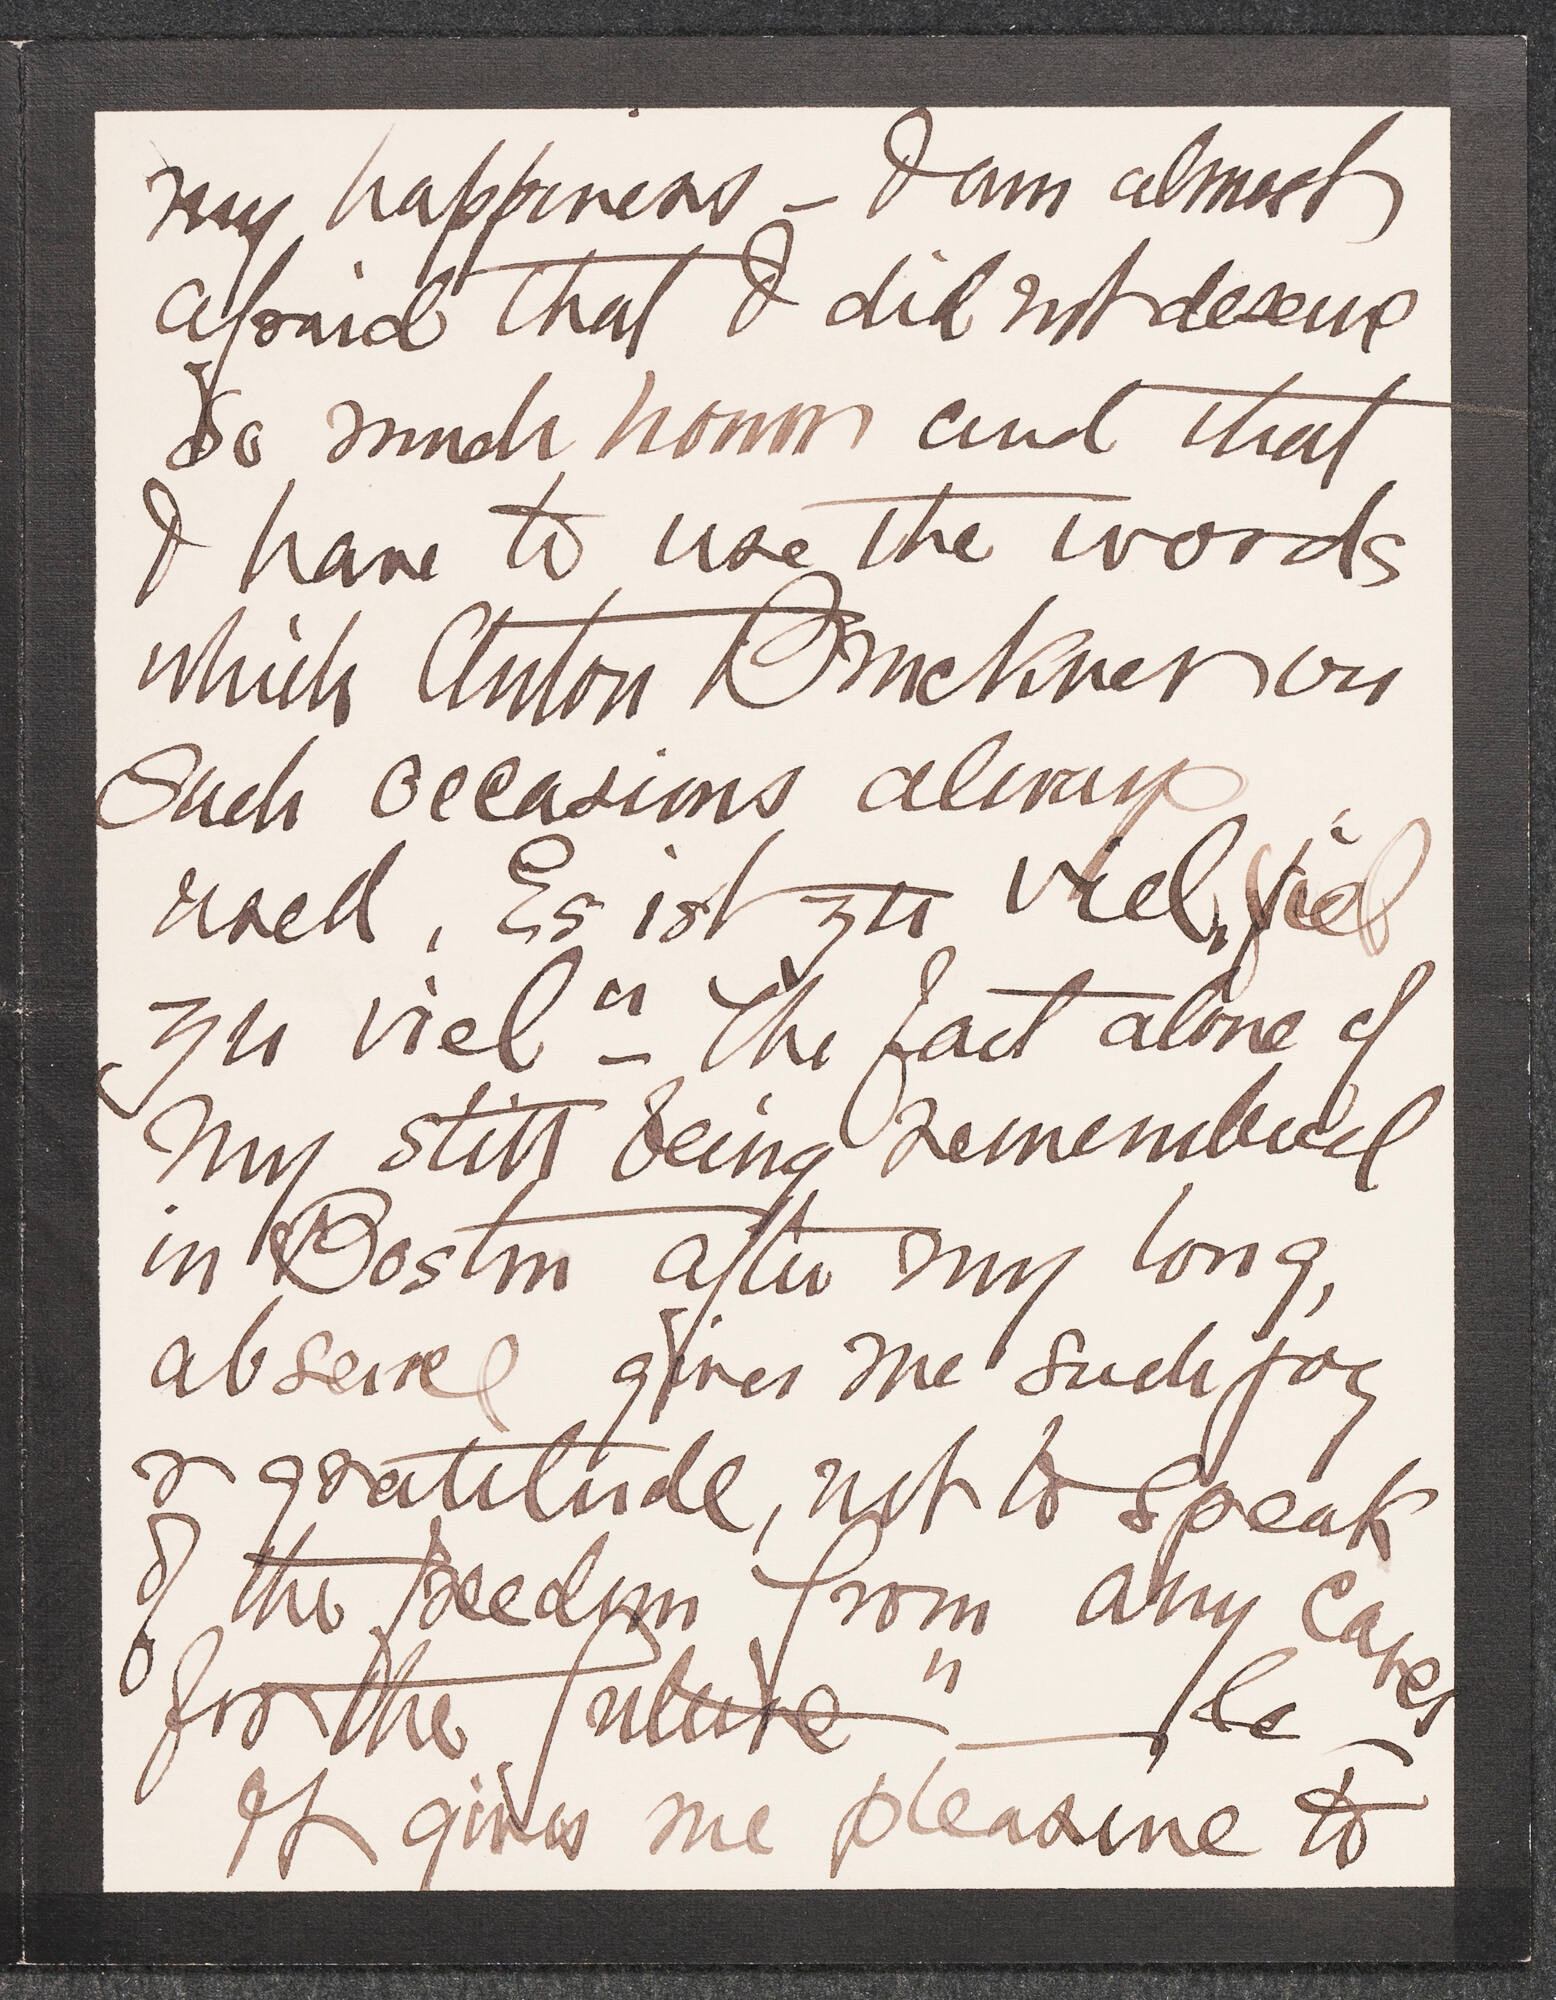 my happiness — I am almost
afraid that I did not deserve
so much honor and that
I have to use the words
which Anton Bruckner on
such occasions always
used, Es ist zu viel, viel
zu viel" — The fact alone of
my still being remembered
in Boston after my long,
absence gives me such joy
& gratitude, not to speak
of the freedom from any cares
for the future" —
It gives me pleasure to